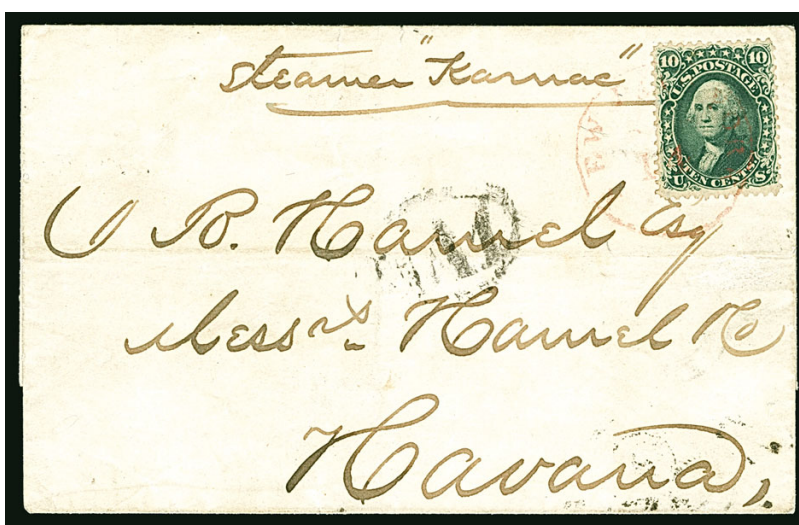 Steamer "Karnac"
10 10
U.S. POSTAGE
TEN CENTS
U S
EW
B. Hamel Esq
Mess rs. Hamel & Co
Havana,